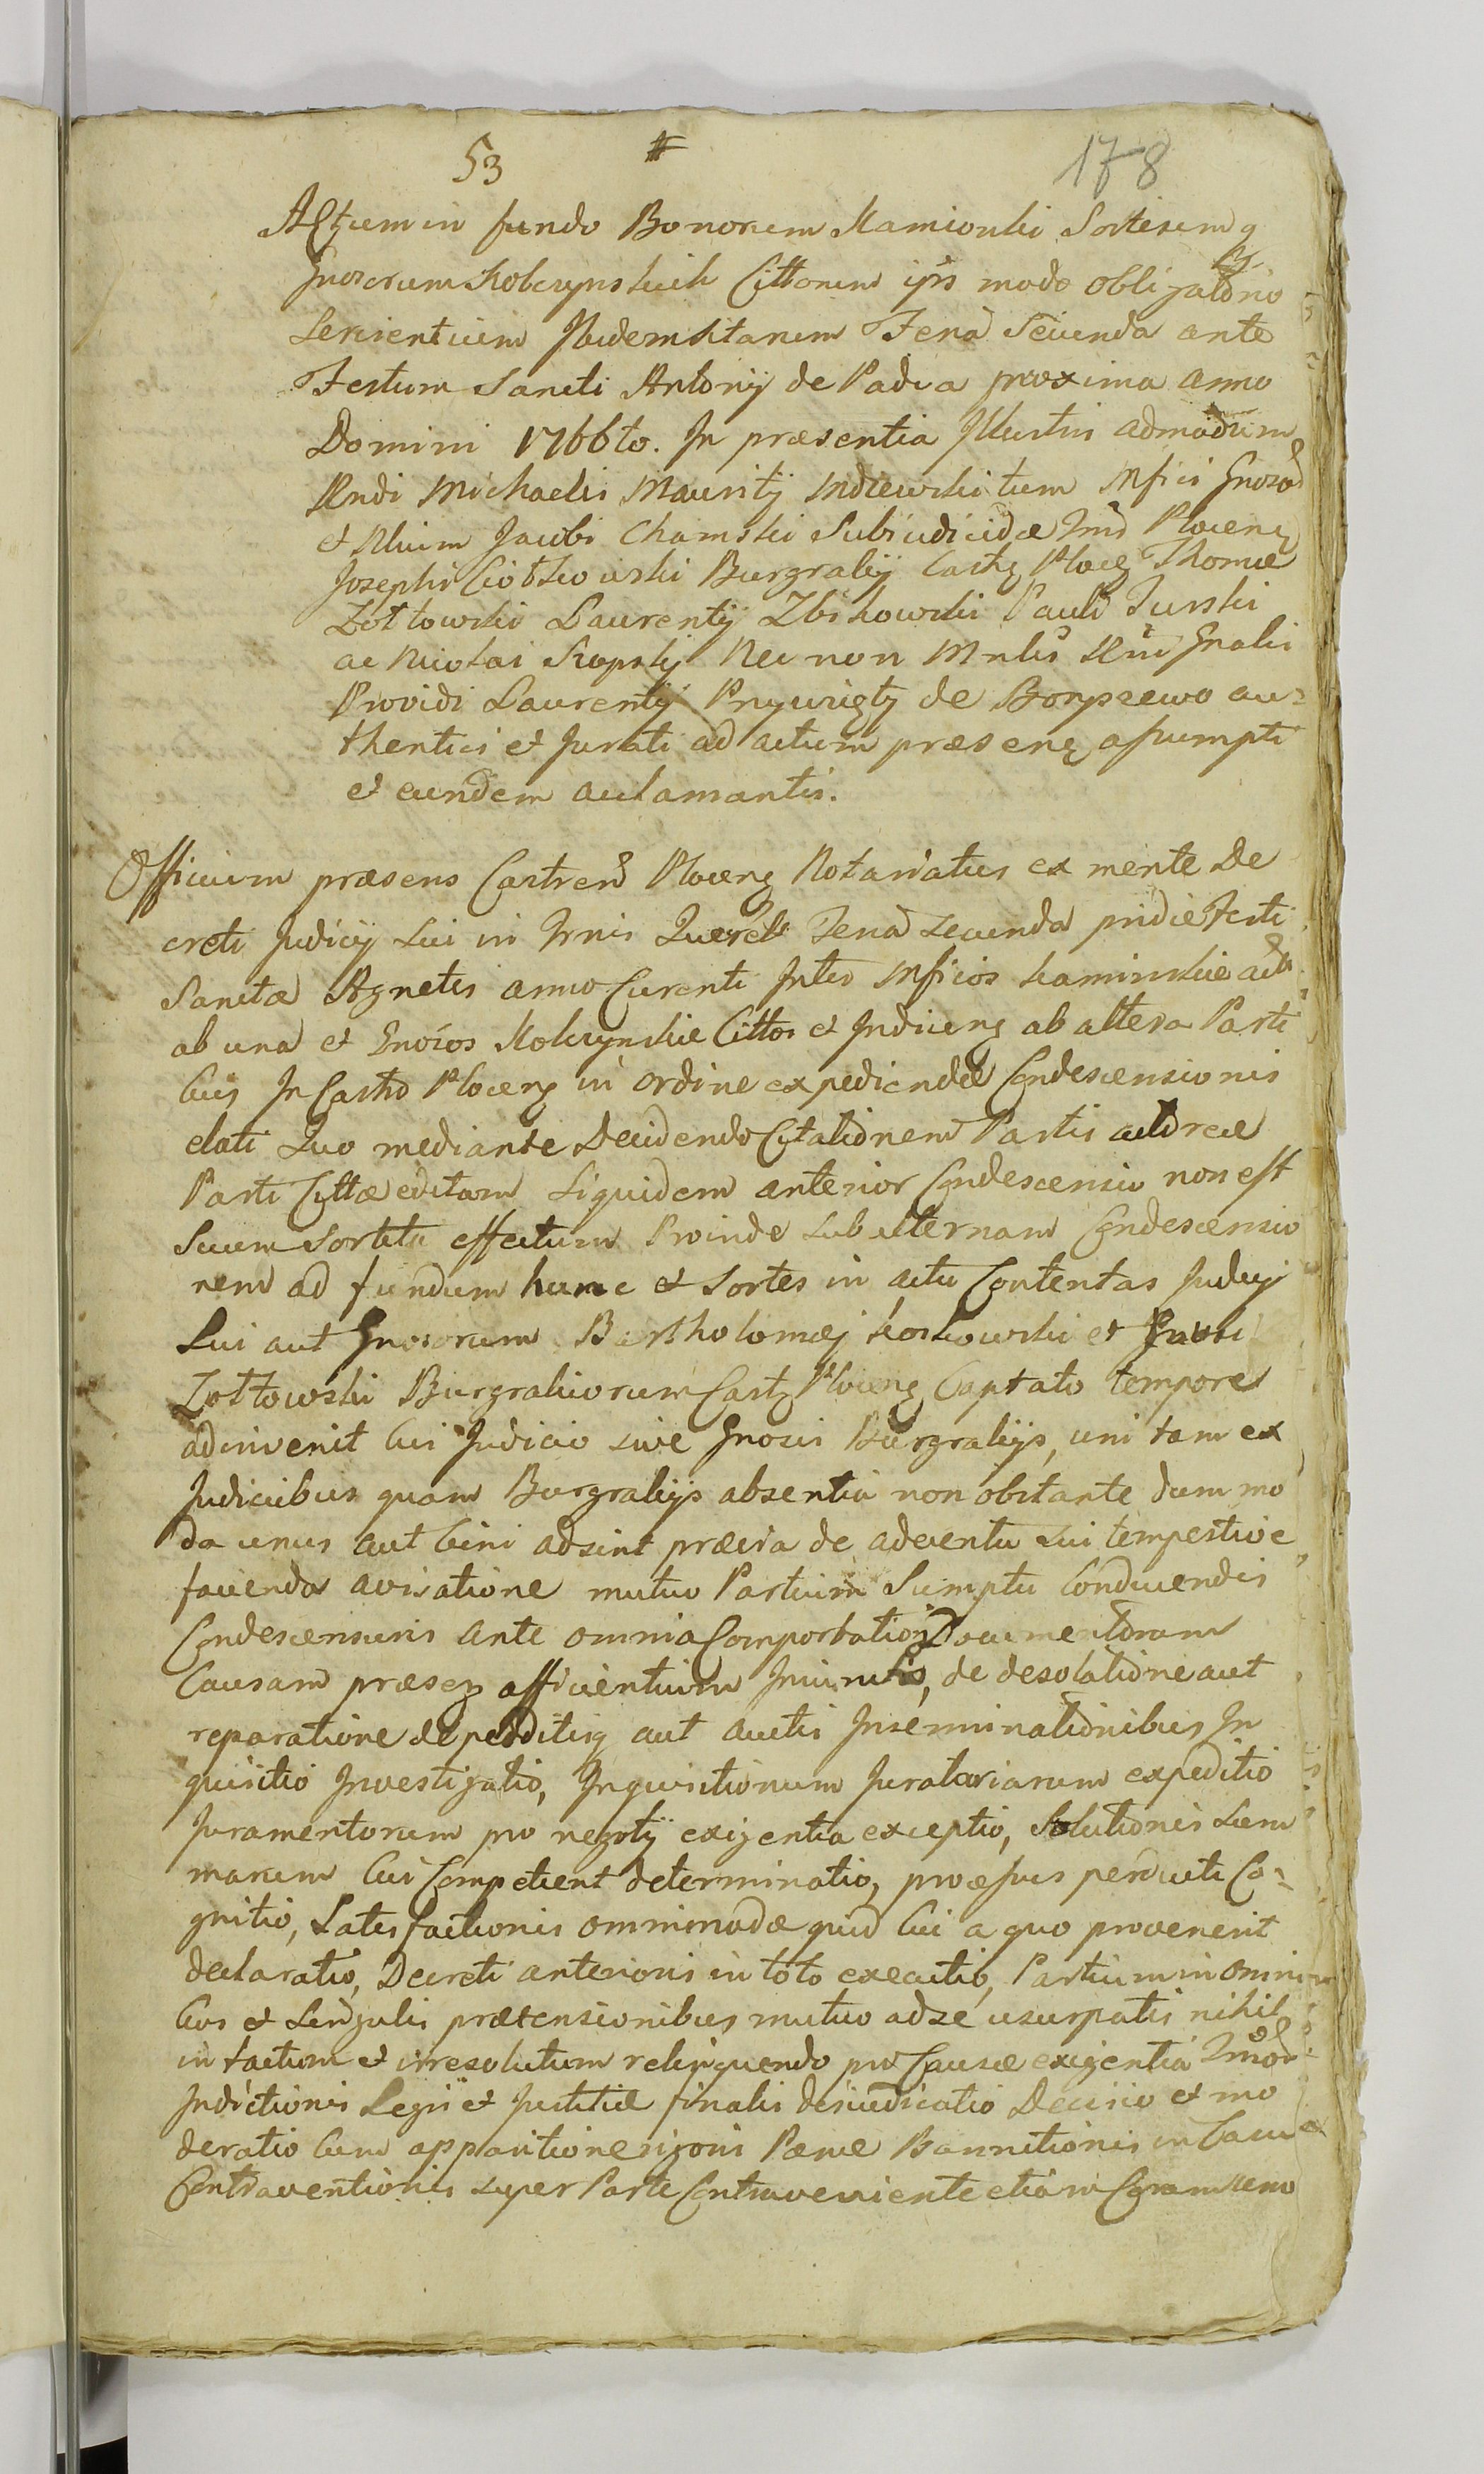 53 # 178
Actum in fundo Bonorum Kamionki Sortisumq
Gnosorum Kolczynskich Cittorum ipsis modo obligatorio
Servientium Ibidem sitarum Feria Secunda ante
Festum Sancti Antonij de Padua proxima anno
Domini 1766to. In præsentia Illustris admodum
Rndi Michaelis Mauritij tum Mfici Gnosor
et Nlium Jacobi Chamski Subiudicidæ Trris Plocenq
Josephi Ciołkowski Burgrabij Castq Plocq Thomæ
Zołtowski Laurentij Zbikowski Pauli Turski
ac Nicolai Krepskij Nec non Mnlis Rni Gnalis
Providi Laurentij Przywizty de Boryszewo au=
thentici et Jurati ad actum præsenq assumpti
et eundem aclamantis.
Officium præsens Castren Plocenq Notariatus ex mente De
creti Judicij sui in Trnis Querel Feria secunda pridie Festi
Sanctæ Agnetis anno Curenti Inter Mficos Kaminskie act
ab una et Gnosos Kolczynskie Cittos et Inducenq ab altera Parti
bus In Castro Plocenq in ordine expediendæ Condescensionis
elati Quo mediante Decidendo Citationem Partis actoreæ
Parti Cittæ editam Siquidem anterior Condescensio non est
Suum Sortita effectum Proinde subalternam Condescensio
nem ad fundum hunc et sortes in actu Contentas Judicij
Sui aut Gnosorum Bartholomæj Koskowski et
Zołtowski Burgrabiorum Castq Plocenq Captato tempore
adinvenit Cui Judicio sive Gnosis Burgrabijs, uni tam ex
Judicibus quam Burgrabijs absentia non obstante dum mo
do unus aut bini adsint prævia de adventu sui tempestive
facienda avisatione mutuo Partium Sumptu Conducendis
Condescensuris ante omnia Comportationq Documentorum
Causam præsenq afficientium Iniunctis, de desolatione aut
reparatione de perditisq aut auctis Inseminationibus In
quisitio Investigatio, Inquisitionum Juratoriarum expeditio
Juramentorum pro negotij exigentia exceptio, Solutionis sum
marum Cui Competent determinatio, processus perducti Co=
gnitio, Satisfactionis omnimodæ quid Cui a quo provenerit
declaratio, Decreti anterioris in toto executio, Partium in omni
bus et singulis prætensionibus mutuo ad se usurpatis nihil
intactum et irresolutum relinquendo pro Causæ exigentia
Indictionis Legis et Justitiæ finalis desiudicatio Decisio et mo
deratio Cum appositione rigoris Pænæ Bannitionis in Casu
Contraventionis super Parte Contraveniente etiam Coram